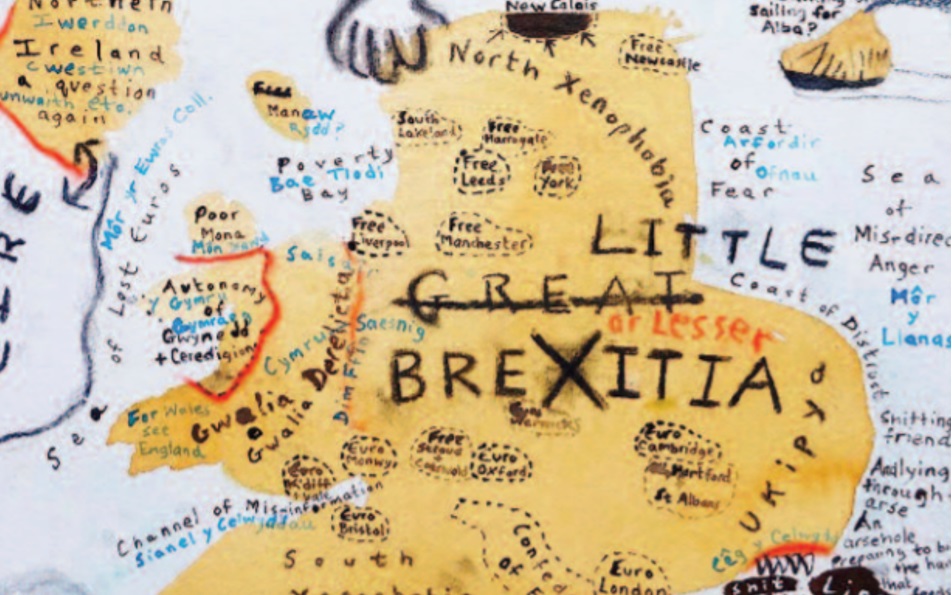 Northern
Iwerddon
Ireland
Cwestiwn
a question
unwaith eto.
again
New Calais
North Xenophobia
Free
Newcastle
Sailing for
Alba?
Manaw
Rydd?
South
Lakeland
Free
Harrogate
Free
Leeds
Free
York
Poverty
Bae Tlodi
Bay
Coast
Arfordir
of Ofnau
Fear
Sea
of
Mis-direc
Anger
Môr
y
Llanas
Môr yr Ewros Coll.
Sea of Lost Euros
Poor
Mona
Môn
Free
Liverpool
Free
Manchester
LITTLE
GREAT
or Lesser
BREXITIA
Coast of Distrust
Autonomy
y Gymru
of
Gymraeg
Gwynedd
+ Ceredigion
Sais
Cymru
Saesnig
Dim Ffin
Gwalia
Gwalia Derelicta
For Wales
see
England
Warwicks
Euro
Monwy
Free
Stroud
Cotswold
Euro
Oxford
Euro
Cambridge
Hertford
St Albans
Ukipyd
Euro
Euro
Bristol
Channel of Mis-information
Sianel y Celwyddau
South
Confed
of
Euro
London
Cêg y Celwydd
Shitting
friend
through
arse
An
arsehole
preparing to bi
the han
that
Shit